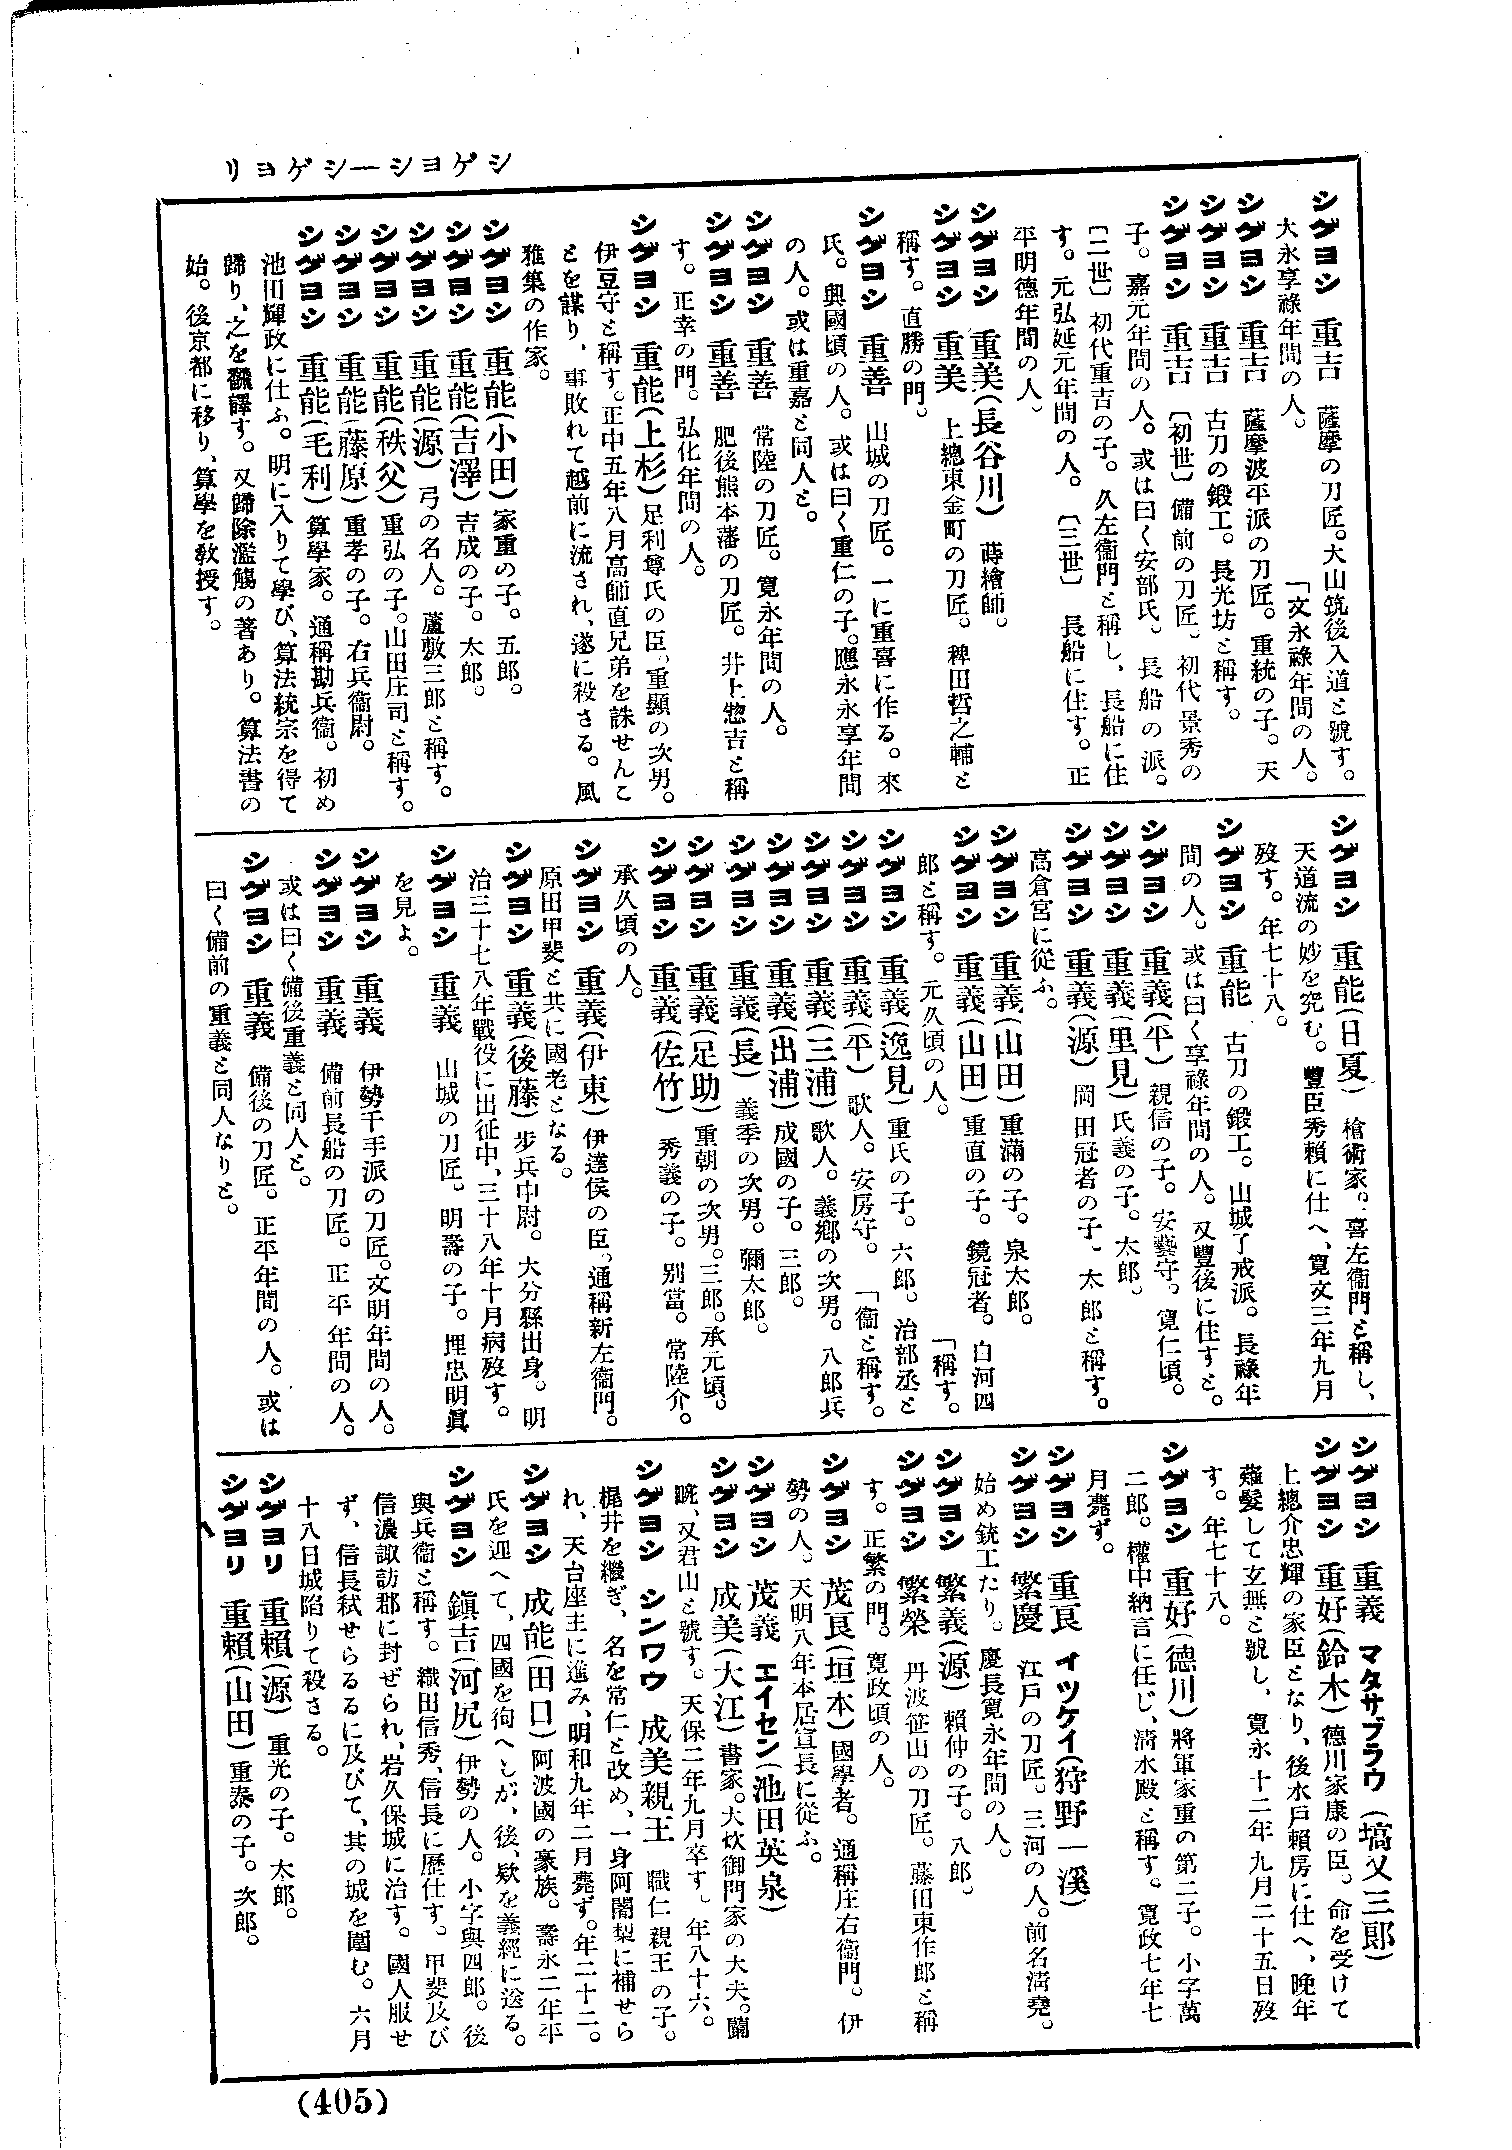 シゲヨシ—シゲヨリ
シゲヨシ 重吉 薩摩の刀匠。大山筑後入道と號す。
大永享祿年間の人。 「文永祿年間の人。
シゲヨシ 重吉 薩摩波平派の刀匠。重統の子。天
シゲヨシ 重吉 古刀の鍛工。長光坊と稱す。
シゲヨシ 重吉 〔初世〕備前の刀匠。初代景秀の
子。嘉元年間の人。或は曰く安部氏。長船の派。
〔二世〕初代重吉の子。久左衞門と稱し、長船に住
す。元弘延元年間の人。〔三世〕長船に住す。正
平明德年間の人。
シゲヨシ 重美(長谷川) 蒔繪師。
シゲヨシ 重美 上總東金町の刀匠。稗田哲之輔と
稱す。直勝の門。
シゲヨシ 重善 山城の刀匠。一に重喜に作る。來
氏。興國頃の人。或は重仁の子。應永永享年間
の人。或は重嘉と同人と。
シゲヨシ 重善 常陸の刀匠。寛永年間の人。
シゲヨシ 重善 肥後熊本藩の刀匠。井上惣吉と稱
す。正幸の門。弘化年間の人。
シゲヨシ 重能(上杉)足利尊氏の臣。重顯の次男。
伊豆守と稱す。正中五年八月高師直兄弟を誅せんこ
とを謀り、事敗れて越前に流され、遂に殺さる。風
雅集の作家。
シゲヨシ 重能(小田)家重の子。五郎。
シゲヨシ 重能(吉澤)吉成の子。太郎。
シゲヨシ 重能(源)弓の名人。蘆敷三郎と稱す。
シゲヨシ 重能(秩父)重弘の子。山田庄司と稱す。
シゲヨシ 重能(藤原)重孝の子。右兵衞尉。
シゲヨシ 重能(毛利)算學家。通稱勘兵衞。初め
池田輝政に仕ふ。明に入りて學び、算法統宗を得て
歸り、之を飜譯す。又歸除濫觴の著あり。算法書の
始。後京都に移り、算學を敎授す。
シゲヨシ 重能(日夏) 槍術家。喜左衞門と稱し、
天道流の妙を究む。豐臣秀賴に仕へ、寛文三年九月
歿す。年七十八。
シゲヨシ 重能 古刀の鍛工。山城了戒派。長祿年
間の人。或は曰く享祿年間の人。又豐後に住すと。
シゲヨシ 重義(平)親信の子。安藝守。寛仁頃。
シゲヨシ 重義(里見)氏義の子。太郎。
シゲヨシ 重義(源) 岡田冠者の子、太郎と稱す。
高倉宮に從ふ。
シゲヨシ 重義(山田)重滿の子。泉太郎。
シゲヨシ 重義(山田)重直の子。鏡冠者。白河四
郎と稱す。元久頃の人。 「稱す。
シゲヨシ 重義(逸見)重氏の子。六郎。治部丞と
シゲヨシ 重義(平) 歌人。安房守。 「衞と稱す。
シゲヨシ 重義(三浦)歌人。義鄕の次男。八郎兵
シゲヨシ 重義(出浦)成國の子。三郎。
シゲヨシ 重義(長) 義季の次男。彌太郎。
シゲヨシ 重義(足助)重朝の次男。三郎。承元頃。
シゲヨシ 重義(佐竹) 秀義の子。別當。常陸介。
承久頃の人。
シゲヨシ 重義(伊東)伊達侯の臣。通稱新左衞門。
原田甲斐と共に國老となる。
シゲヨシ 重義(後藤)步兵中尉。大分縣出身。明
治三十七八年戰役に出征中、三十八年十月病歿す。
シゲヨシ 重義 山城の刀匠。明壽の子。埋忠明眞
を見よ。
シゲヨシ 重義 伊勢千手派の刀匠。文明年間の人。
シゲヨシ 重義 備前長船の刀匠。正平年間の人。
或は曰く備後重義と同人と。
シゲヨシ 重義 備後の刀匠。正平年間の人。或は
曰く備前の重義と同人なりと。
シゲヨシ 重義 マタサブラウ(塙又三郎)
シゲヨシ 重好(鈴木)德川家康の臣。命を受けて
上總介忠輝の家臣となり、後水戶賴房に仕へ、晚年
薙髮して玄無と號し、寛永十二年九月二十五日歿
す。年七十八。
シゲヨシ 重好(德川)將軍家重の第二子。小字萬
二郎。權中納言に任じ、淸水殿と稱す。寛政七年七
月薨ず。
シゲヨシ 重良 イツケイ(狩野一溪)
シゲヨシ 繁慶 江戶の刀匠。三河の人。前名淸堯。
始め銃工たり。慶長寛永年間の人。
シゲヨシ 繁義(源) 賴仲の子。八郎。
シゲヨシ 繁榮 丹波笹山の刀匠。藤田東作郎と稱
す。正繁の門。寛政頃の人。
シゲヨシ 茂良(垣本)國學者。通稱庄右衞門。伊
勢の人。天明八年本居宣長に從ふ。
シゲヨシ 茂義 エイセン(池田英泉)
シゲヨシ 成美(大江)書家。大炊御門家の大夫。蘭
畹、又君山と號す。天保二年九月卒す。年八十六。
シゲヨシ シンワウ 成美親王 職仁親王の子。
梶井を繼ぎ、名を常仁と改め、一身阿闍梨に補せら
れ、天台座主に進み、明和九年二月薨ず。年二十二。
シゲヨシ 成能(田口)阿波國の豪族。壽永二年平
氏を迎へて、四國を徇へしが、後、欵を義經に送る。
シゲヨシ 鎭吉(河尻)伊勢の人。小字與四郎。後
與兵衞と稱す。織田信秀、信長に歷仕す。甲斐及び
信濃諏訪郡に封ぜられ、岩久保城に治す。國人服せ
ず、信長弒せらるるに及びて、其の城を圍む。六月
十八日城陷りて殺さる。
シゲヨリ 重賴(源) 重光の子。太郎。
シゲヨリ 重賴(山田) 重泰の子。次郎。
(405)